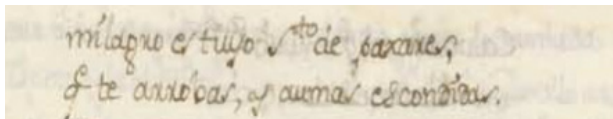 milagro es tuyo Sto de paxares,
q te arrobas, as aumas escondidas.